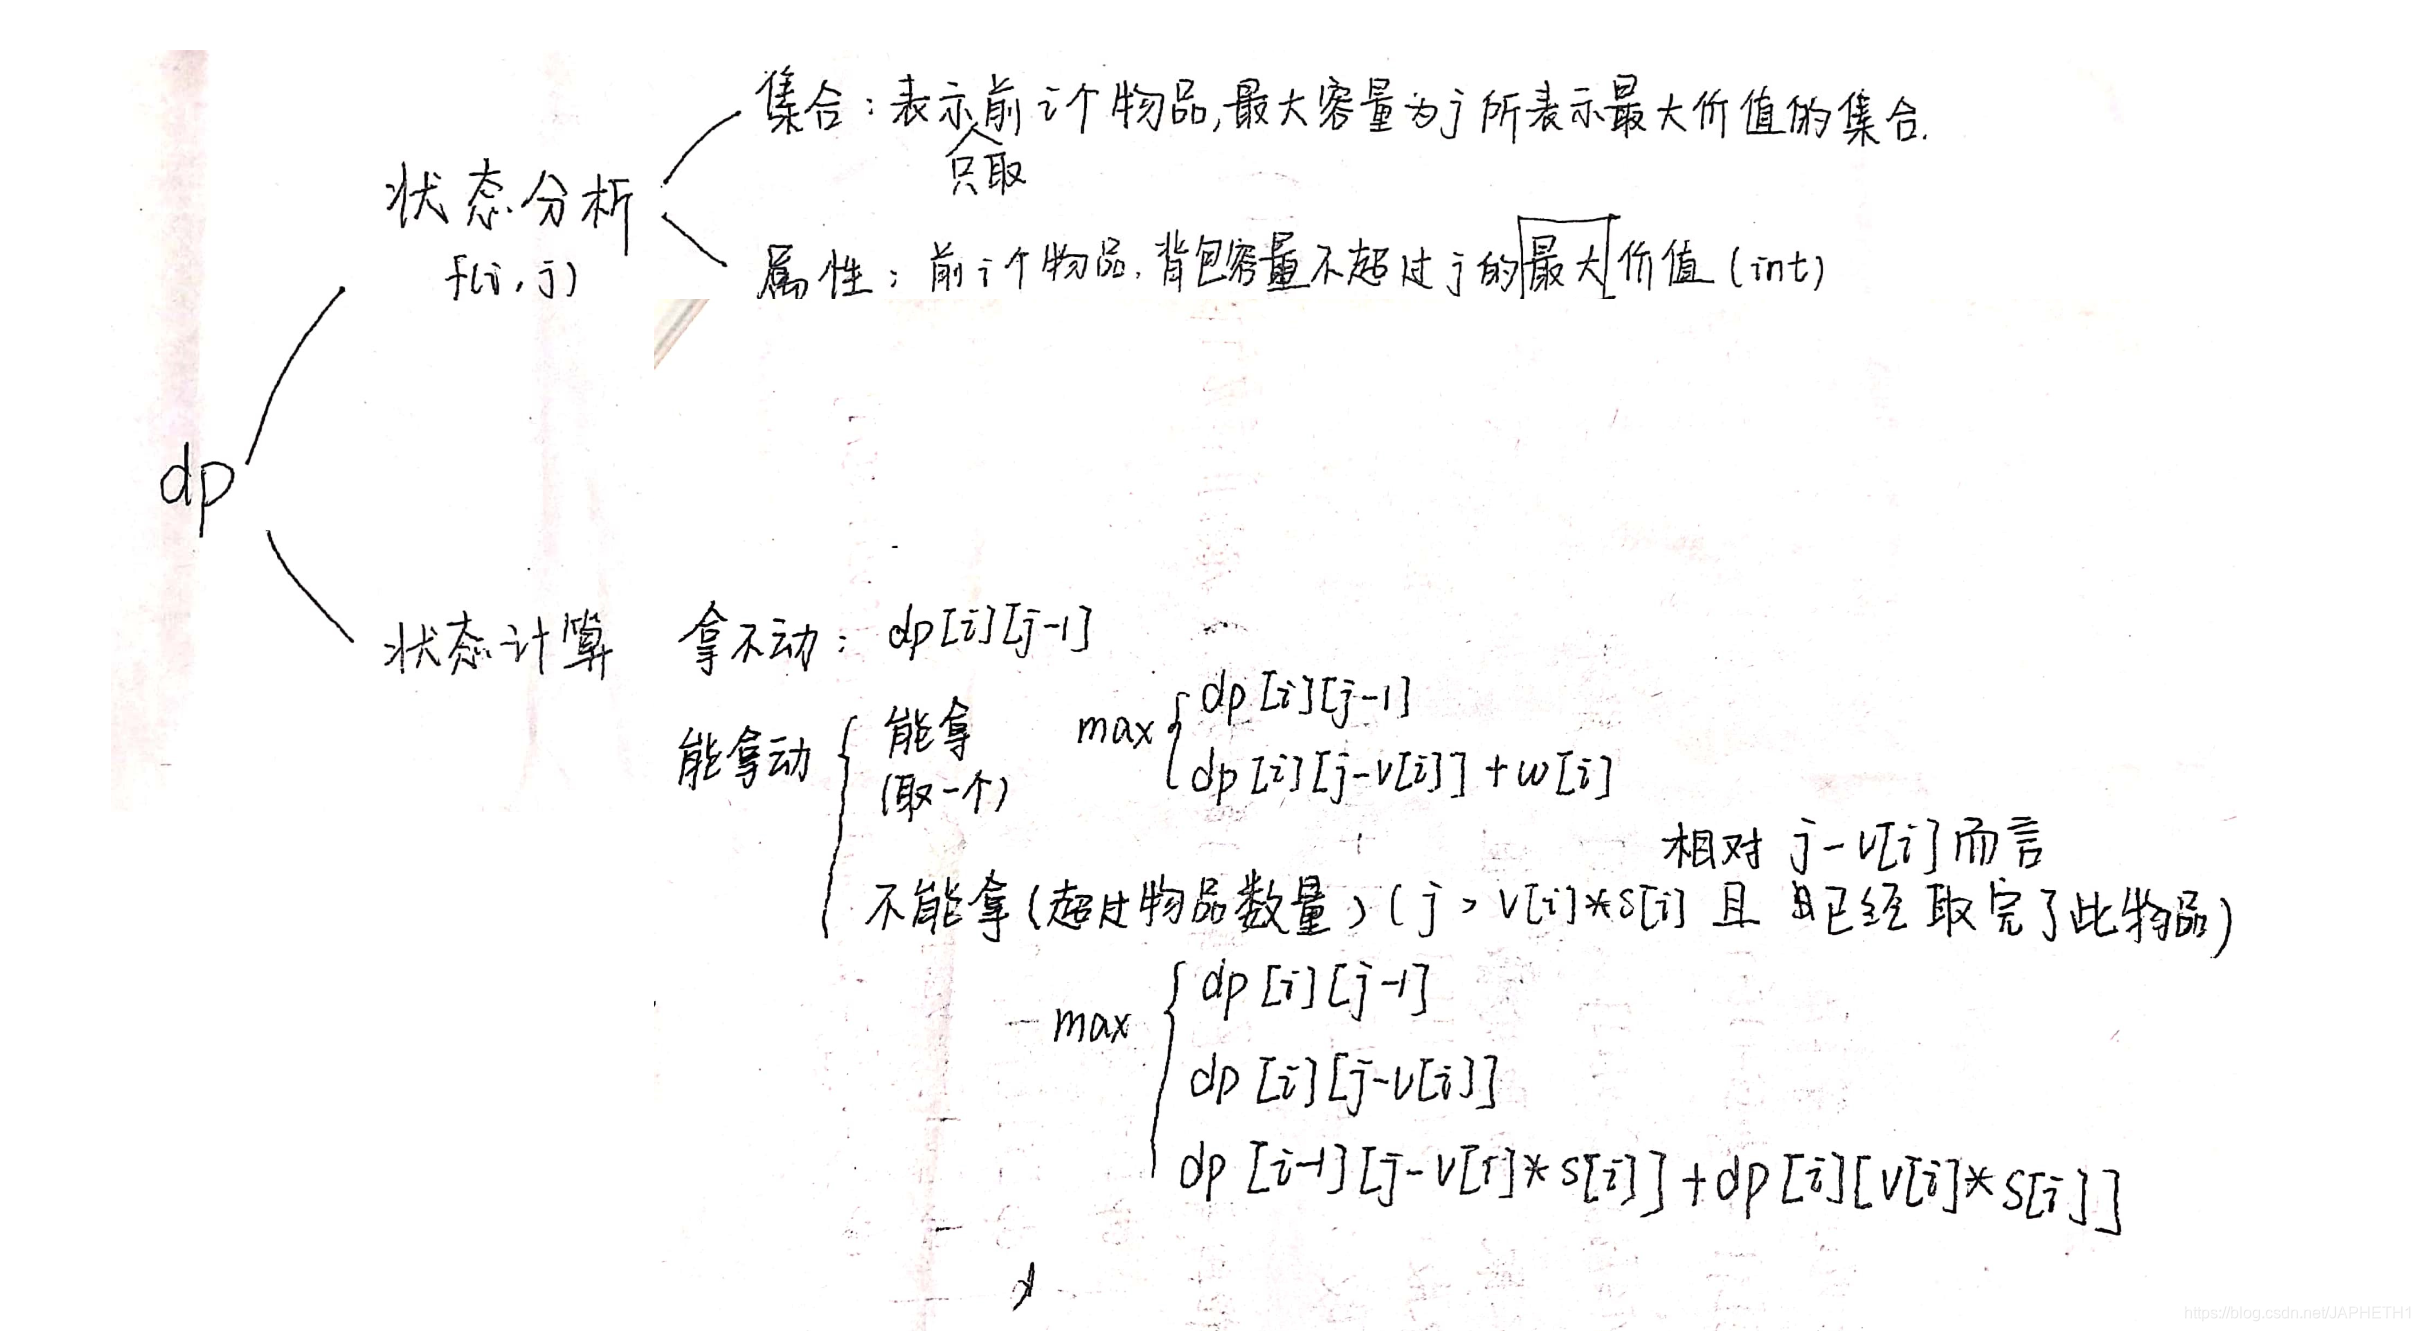 集合：表示前i个物品,最大容量为j所表示最大价值的集合.
只取
状态分析
f(i,j)
属性：前i个物品,背包容量不超过j的最大价值(int)
dp
状态计算
拿不动：dp[i][j-1]
能拿动
能拿
(取一个)
max
dp[i][j-1]
dp[i][j-v[i]]+w[i]
相对 j-v[i]而言
不能拿(超过物品数量)(j>v[i]*s[i] 且 已经取完了此物品)
max
dp[i][j-1]
dp[i][j-v[i]]
dp[i-1][j-v[i]*s[i]]+dp[i][v[i]*s[i]]
https://blog.csdn.net/JAPHETH1